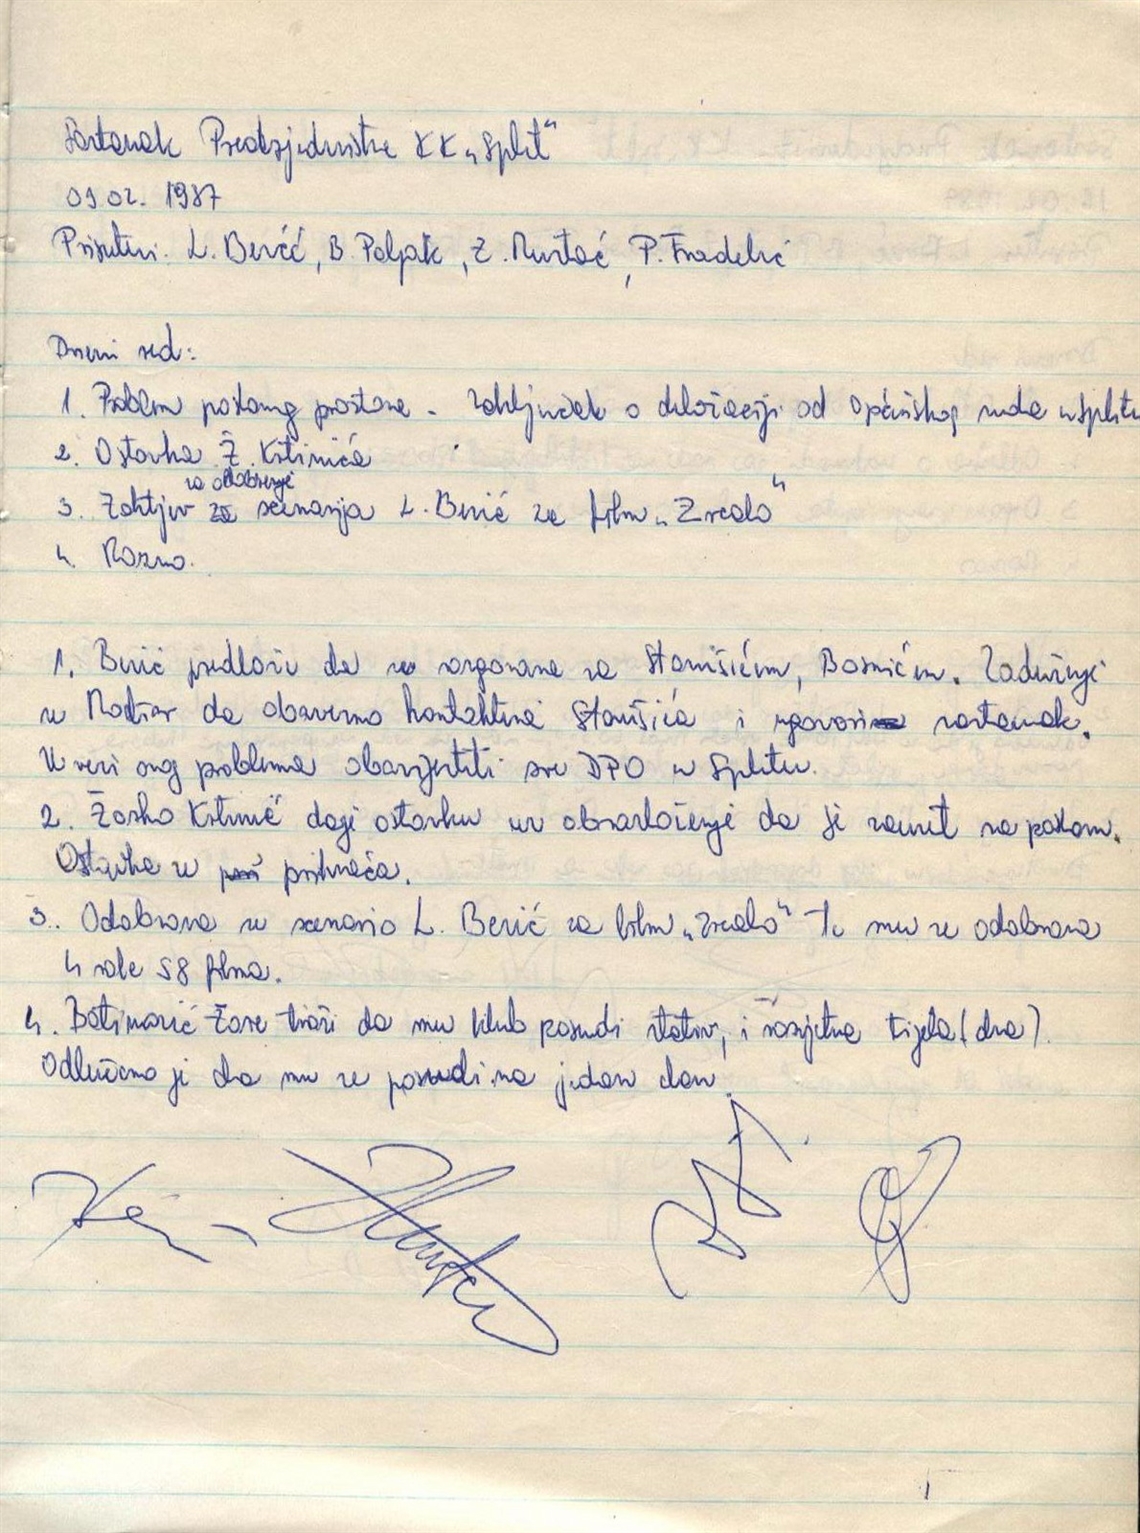 Sastanak Predsjedništva KK „Split“
09.02. 1987
Prisutni: L. Berčić, B. Poljak, Z. Mustać, P. Fradelić
Dnevni red:
1. Problem poslovnog prostora - zaključak o deložaciji od Općinskog suda u Splitu
2. Ostavka Ž. Krstinića
za odobrenje
3. Zahtjev za scenarija L. Berčić za film „Zrcalo“
4. Razno.
1. Berčić predlaže da se razgovara sa Stanišićem, Bosnićem. Zadužuje
se da obavezno kontaktira Stanišića i ugovori sastanak.
U vezi ovog problema obavijestiti sve DPO u Splitu.
2. Žarko Krstinić daje ostavku uz obrazloženje da je zauzet na poslom.
Ostavka se prihvaća.
3. Odobrava se scenario L. Berčić za film „Zrcalo“ Te mu se odobrava
4 role S8 filma.
4. Batinović traži da mu klub posudi stativ, i rasvjetna tijela (dva).
Odlučeno je da mu se posudi na jedan dan.